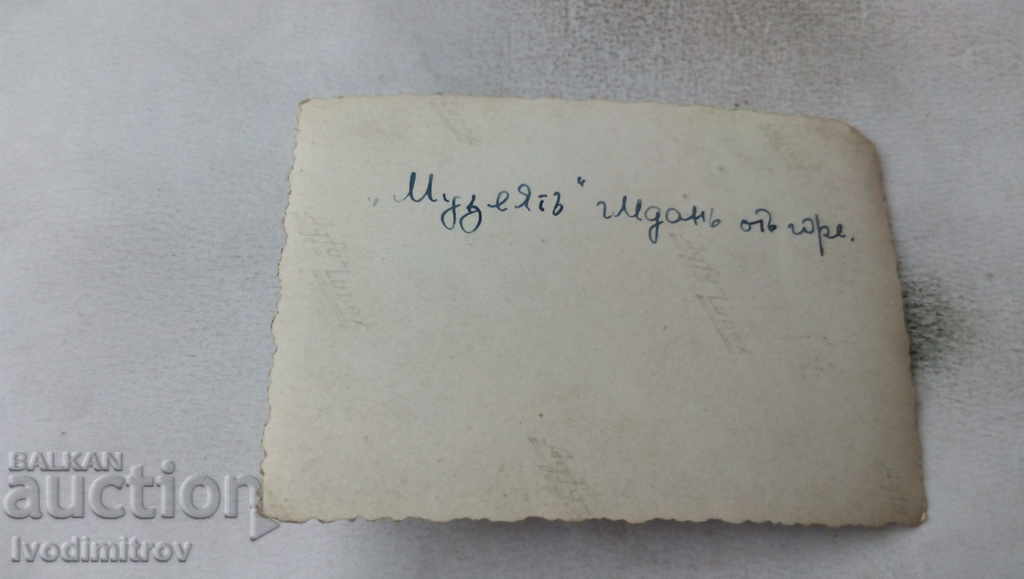 „Музеятъ" гледанъ отъ горе.
BALKAN
auction
Ivodimitrov